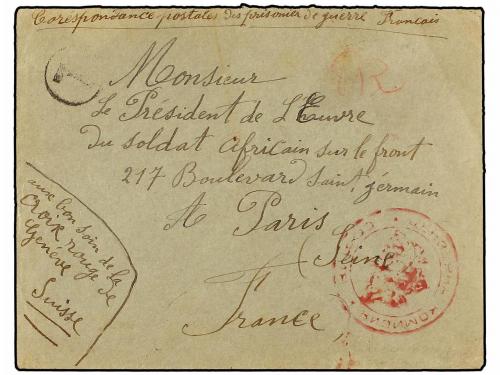 Corespondance postales des prisonier de guerre Francais
Monsieur
Le Président de L'Euvre
du soldat africain sur le front
217 Boulevard Saint, gérmain
A Paris
(Seine
France
aux bon soin de la
Croix rouge de
Genéve
Suisse